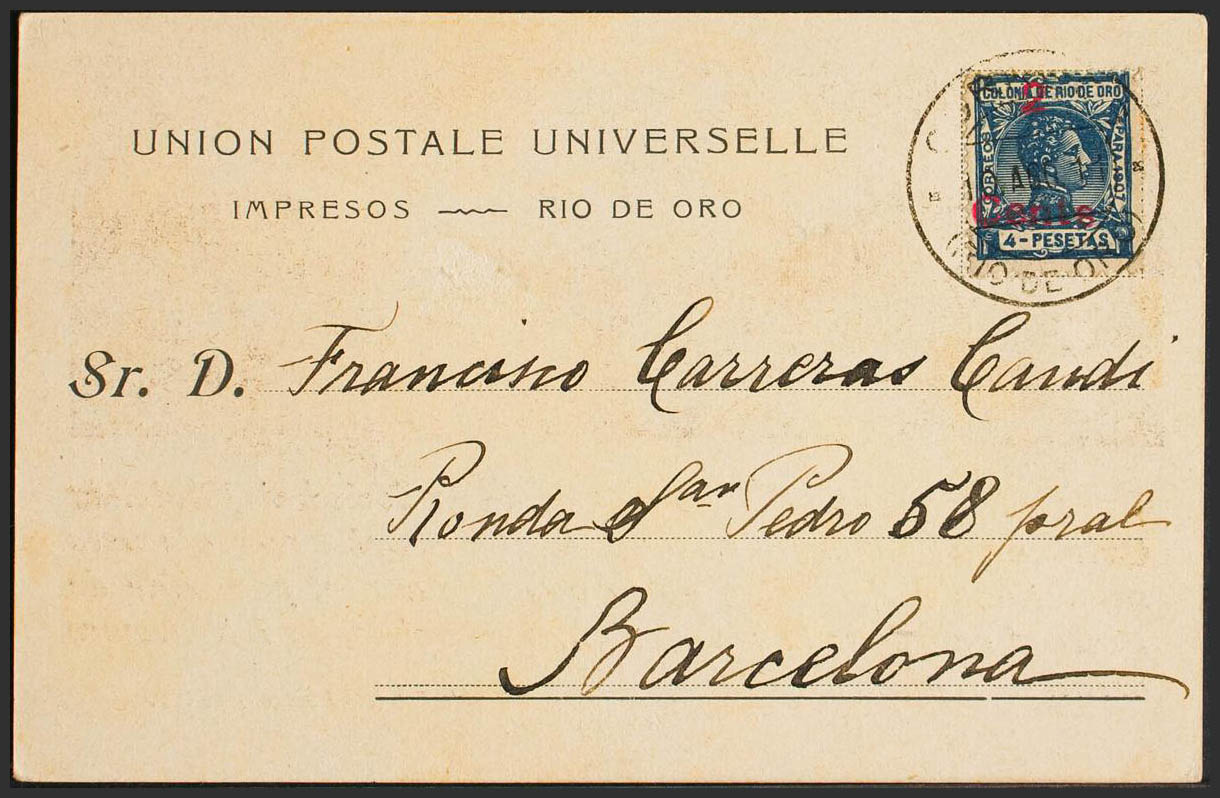 UNION POSTALE UNIVERSELLE
IMPRESOS RIO DE ORO
COLONIA DE RIO DE ORO
2
CORREOS
PARA 1907
Cents
4 - PESETAS
RIO DE ORO
Sr. D. Francisco Carreras Candi
Ronda San Pedro 58 pral
Barcelona